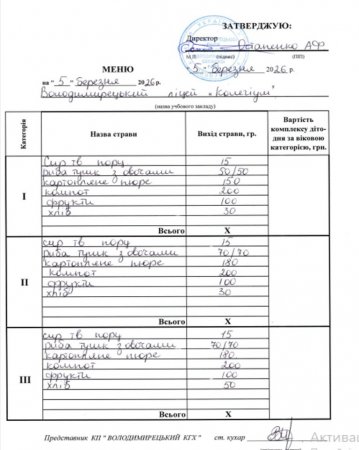 ЗАТВЕРДЖУЮ:
Директор
Остапенко АФ
М.П. (підпис) (ПІП)
МЕНЮ " 5 " березня 2026 р.
на " 5 " березня 2026 р.
Володимирецький ліцей "Колегіум"
(назва учбового закладу)
Категорія Назва страви Вихід страви, гр. Вартість комплексу діто-дня за віковою категорією, грн.
I
Сир тв порц. 15
риба туш з овочами 50/50
картопляне пюре 150
компот 200
фрукти 100
хліб 30
Всього X
II
сир тв порц 15
риба туш з овочами 70/70
картопляне пюре 180
компот 200
фрукти 100
хліб 30
Всього X
III
сир тв порц 15
риба туш з овочами 70/70
картопляне пюре 180
компот 200
фрукти 100
хліб 50
Всього X
Представник КП " ВОЛОДИМИРЕЦЬКИЙ КГХ " ст. кухар
Актива